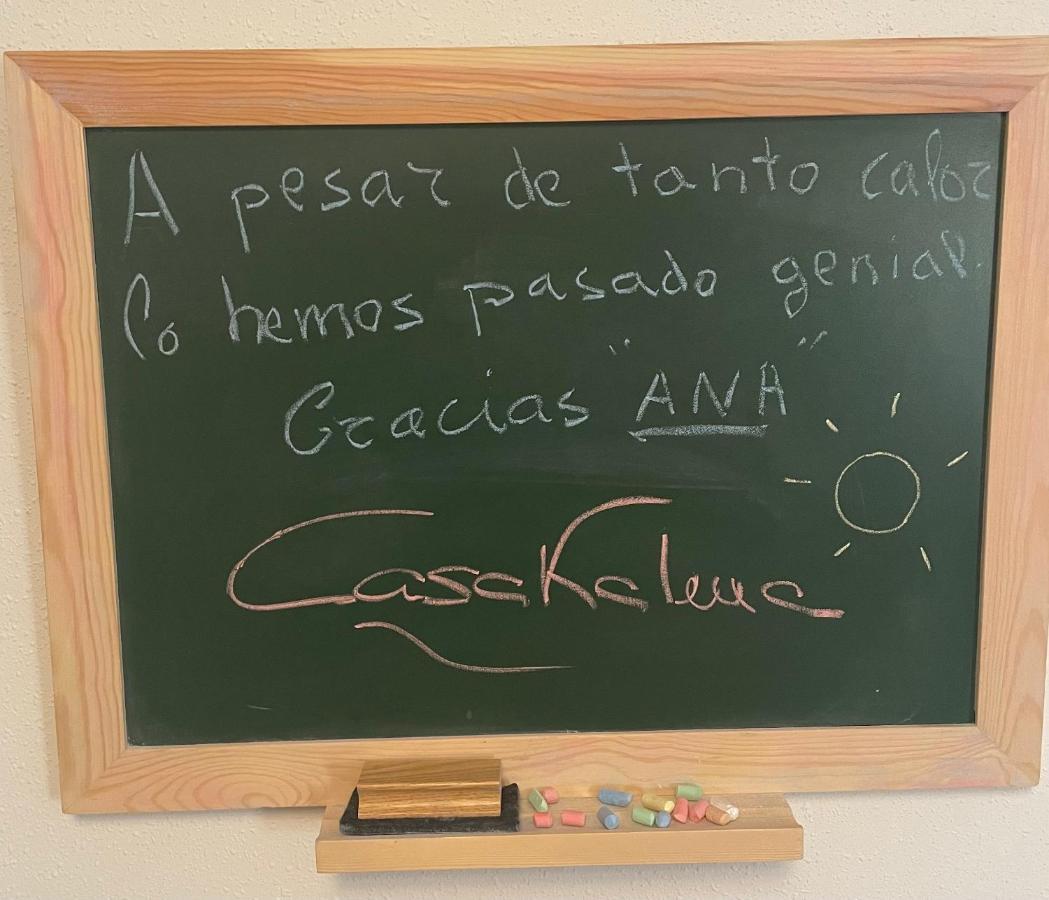 A pesar de tanto calor
lo hemos pasado genial.
Gracias "ANA"
CasaKalma